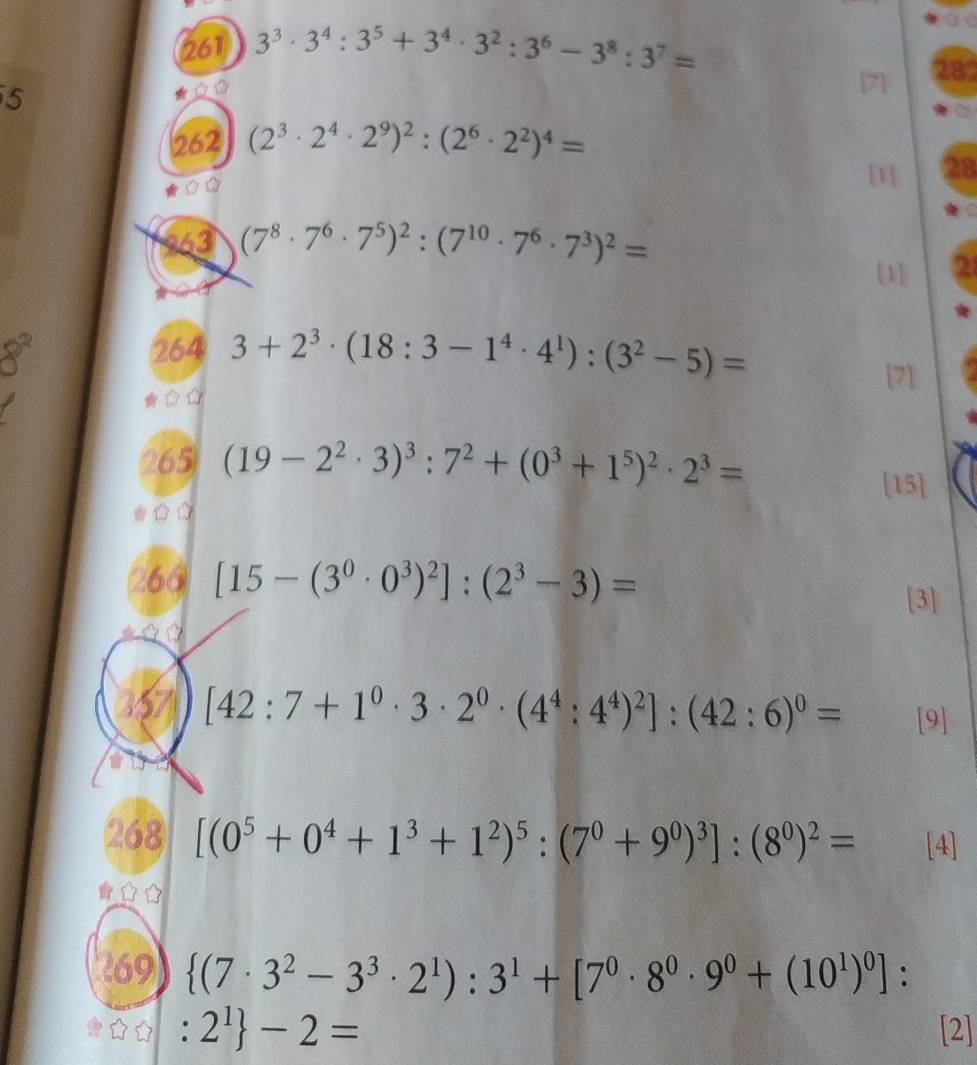 261 3³ · 3⁴ : 3⁵ + 3⁴ · 3² : 3⁶ − 3⁸ : 3⁷ = [7]
262 (2³ · 2⁴ · 2⁹)² : (2⁶ · 2²)⁴ = [1]
263 (7⁸ · 7⁶ · 7⁵)² : (7¹⁰ · 7⁶ · 7³)² = [1]
264 3 + 2³ · (18 : 3 − 1⁴ · 4¹) : (3² − 5) = [7]
265 (19 − 2² · 3)³ : 7² + (0³ + 1⁵)² · 2³ = [15]
266 [15 − (3⁰ · 0³)²] : (2³ − 3) = [3]
267 [42 : 7 + 1⁰ · 3 · 2⁰ · (4⁴ : 4⁴)²] : (42 : 6)⁰ = [9]
268 [(0⁵ + 0⁴ + 1³ + 1²)⁵ : (7⁰ + 9⁰)³] : (8⁰)² = [4]
269 {(7 · 3² − 3³ · 2¹) : 3¹ + [7⁰ · 8⁰ · 9⁰ + (10¹)⁰] :
: 2¹} − 2 = [2]
282